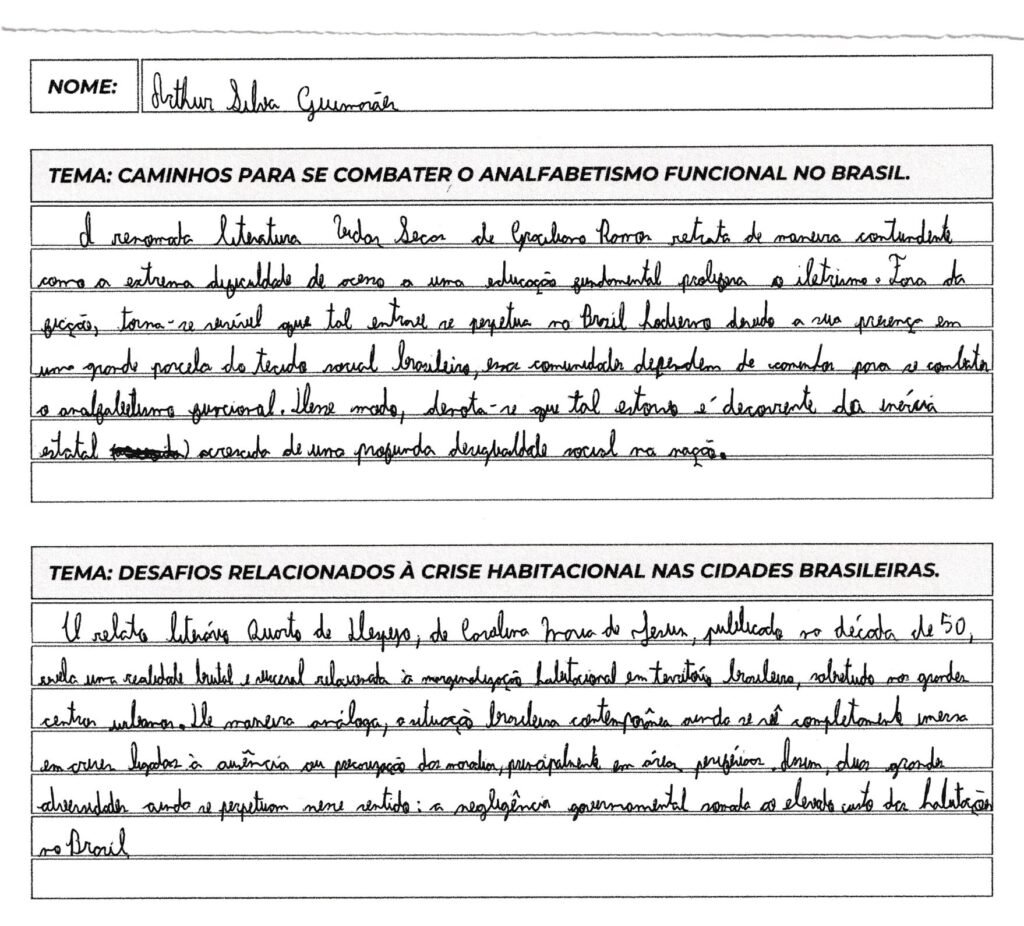 NOME: Arthur Silva Guimarães
TEMA: CAMINHOS PARA SE COMBATER O ANALFABETISMO FUNCIONAL NO BRASIL.
A renomada literatura Vidas Secas de Graciliano Ramos retrata de maneira contundente
como a extrema dificuldade de acesso a uma educação fundamental prolifera o iletrismo. Fora da
ficção, torna-se sensível que tal entrave se perpetua no Brasil hodierno devido a sua presença em
uma grande parcela do tecido social brasileiro, essas comunidades dependem de para se combater
o analfabetismo funcional. Desse modo, denota-se que tal estorvo é decorrente da inércia
estatal acrescida de uma profunda desigualdade social na nação.
TEMA: DESAFIOS RELACIONADOS À CRISE HABITACIONAL NAS CIDADES BRASILEIRAS.
O relato literário Quarto de Despejo, de Carolina Maria de Jesus, publicado na década de 50,
revela uma realidade brutal e visceral relacionada à marginalização habitacional em território brasileiro, sobretudo nos grandes
centros urbanos. De maneira análoga, a situação brasileira contemporânea ainda se vê completamente imersa
em crises ligadas à ausência ou precarização das moradias, principalmente em áreas periféricas. Assim, duas grandes
adversidades ainda se perpetuam nesse sentido: a negligência governamental somada ao elevado custo das habitações
no Brasil